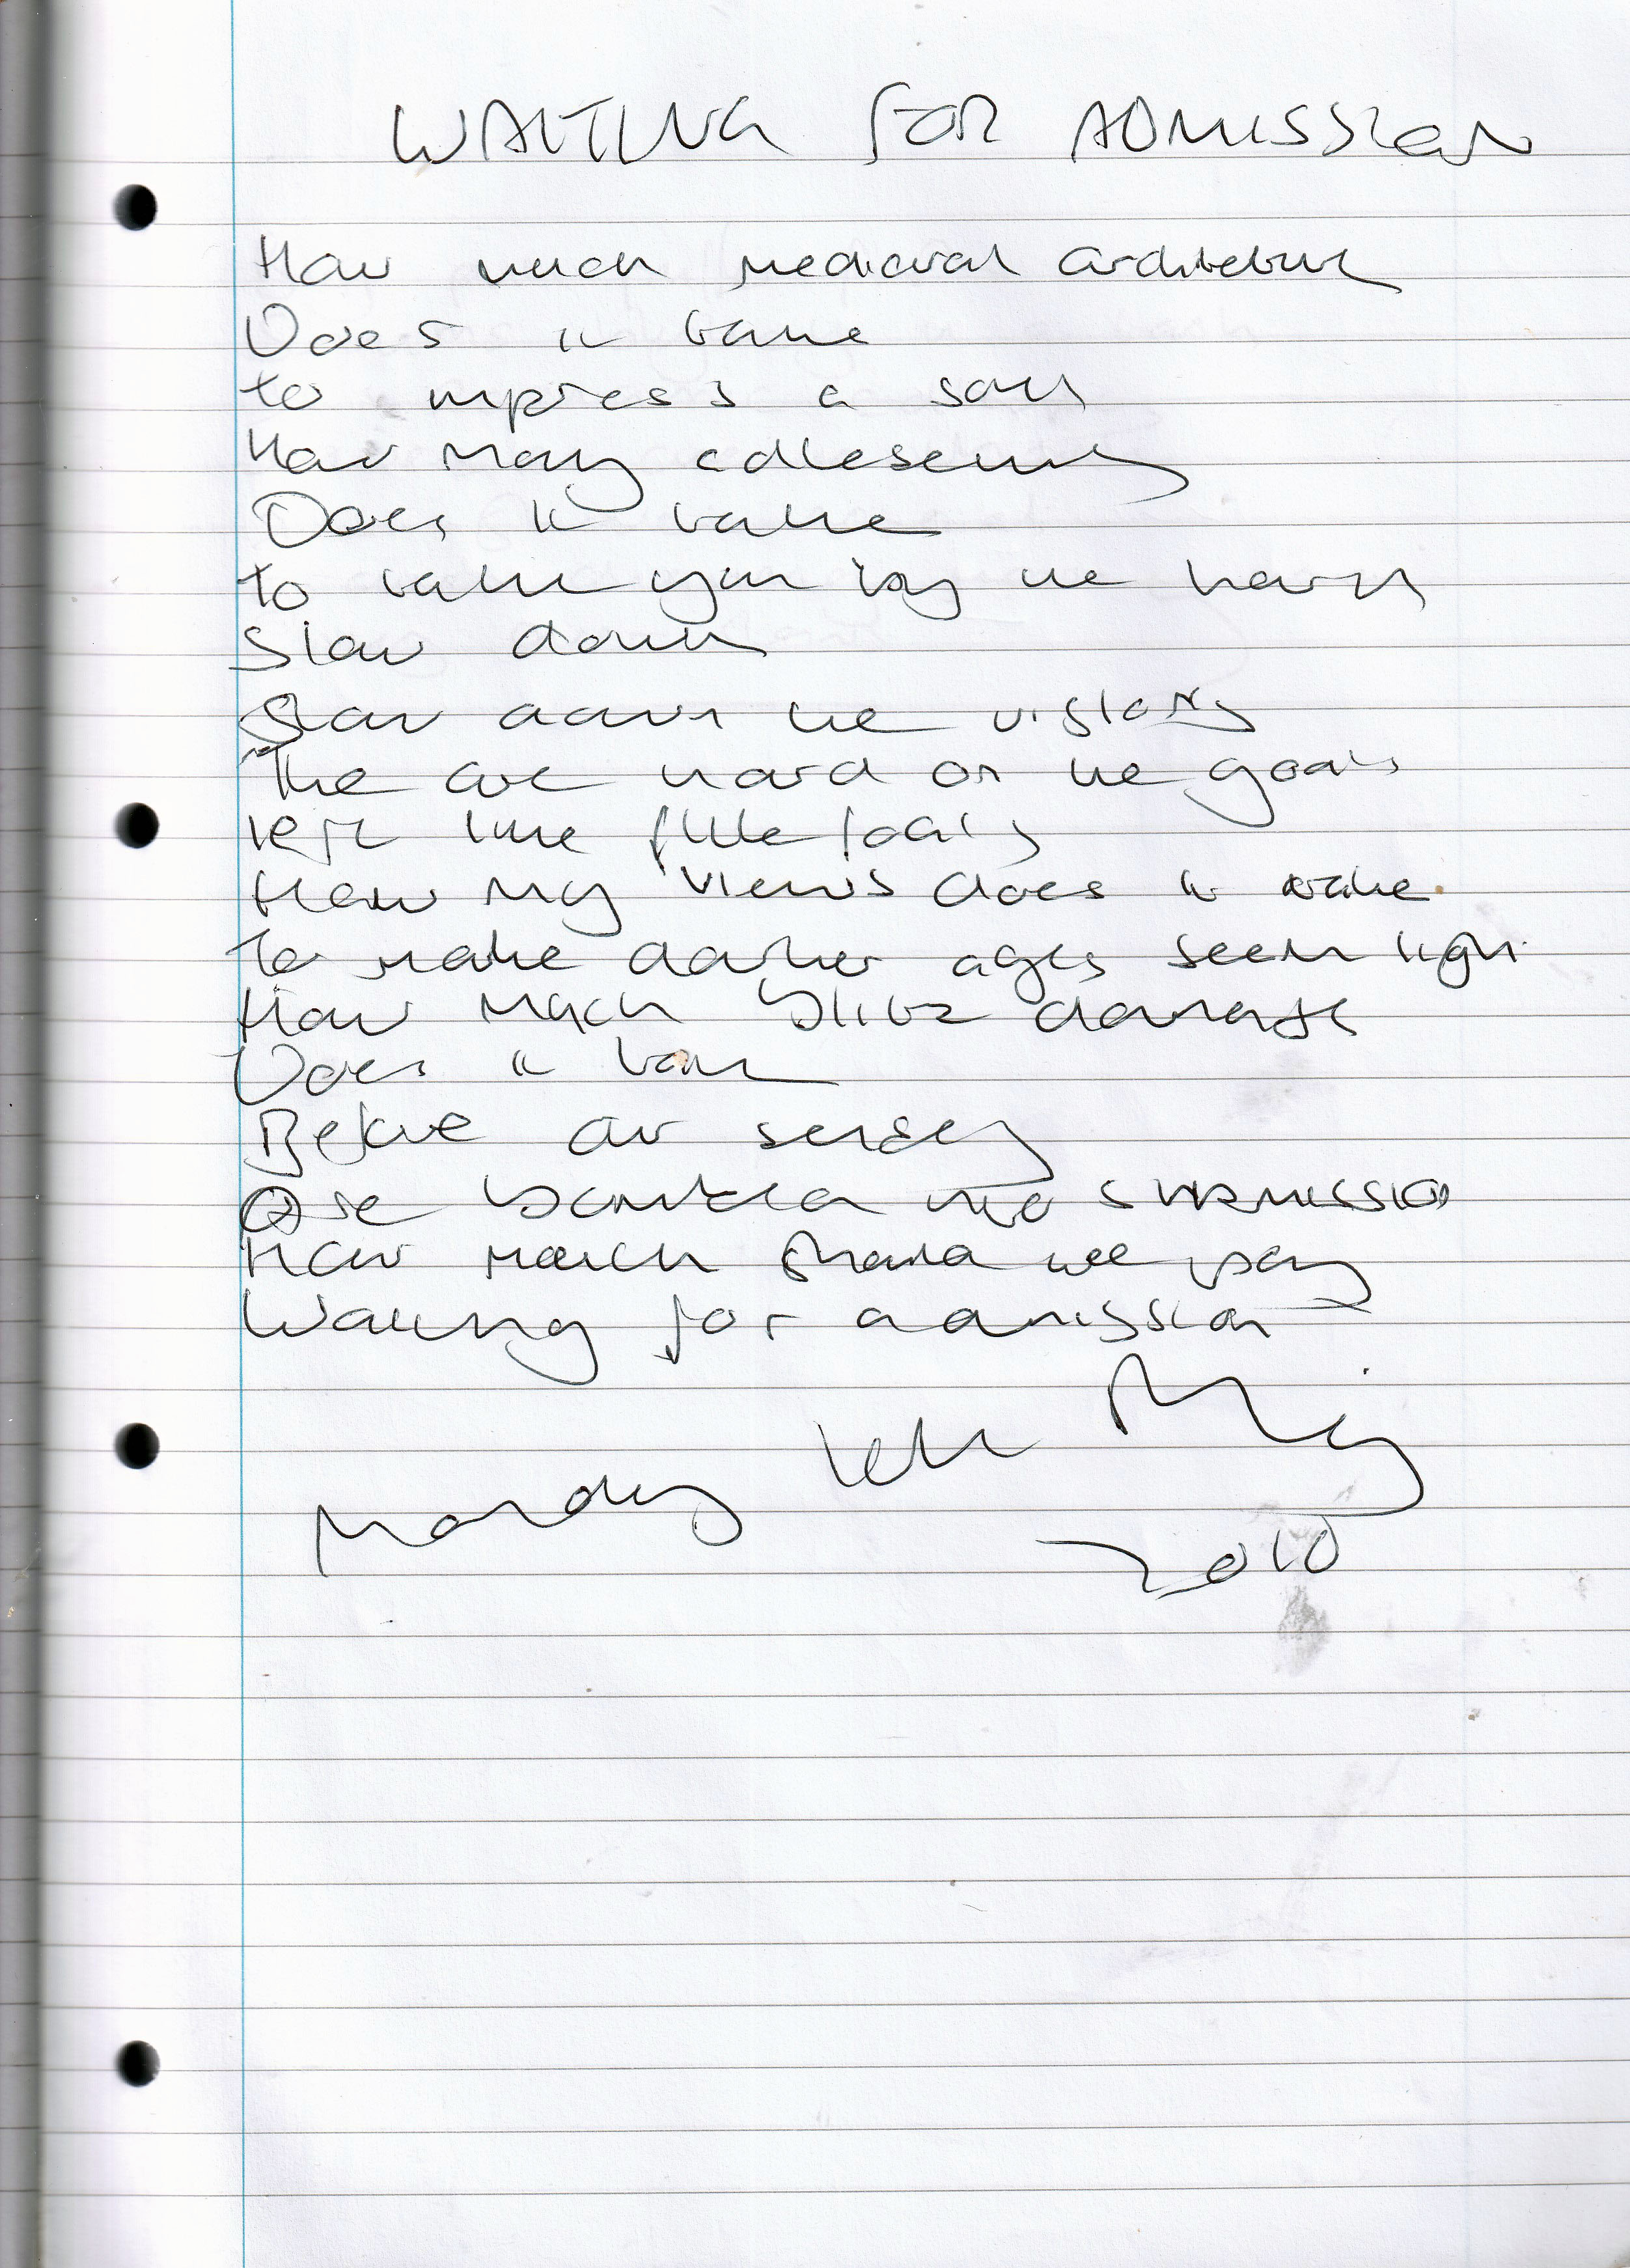 WAITING FOR ADMISSION
How much mediaeval architecture
Does it take
to impress a soul
How many
Does it take
to take you by the hand
Slow down
Slow down the visions
The are hard on the goals
left like
How my views does it take
To make darker ages seem light
How much blitz damage
Does it take
Before our senses
are bombed into submission
How much should we pay
Waiting for admission
2010